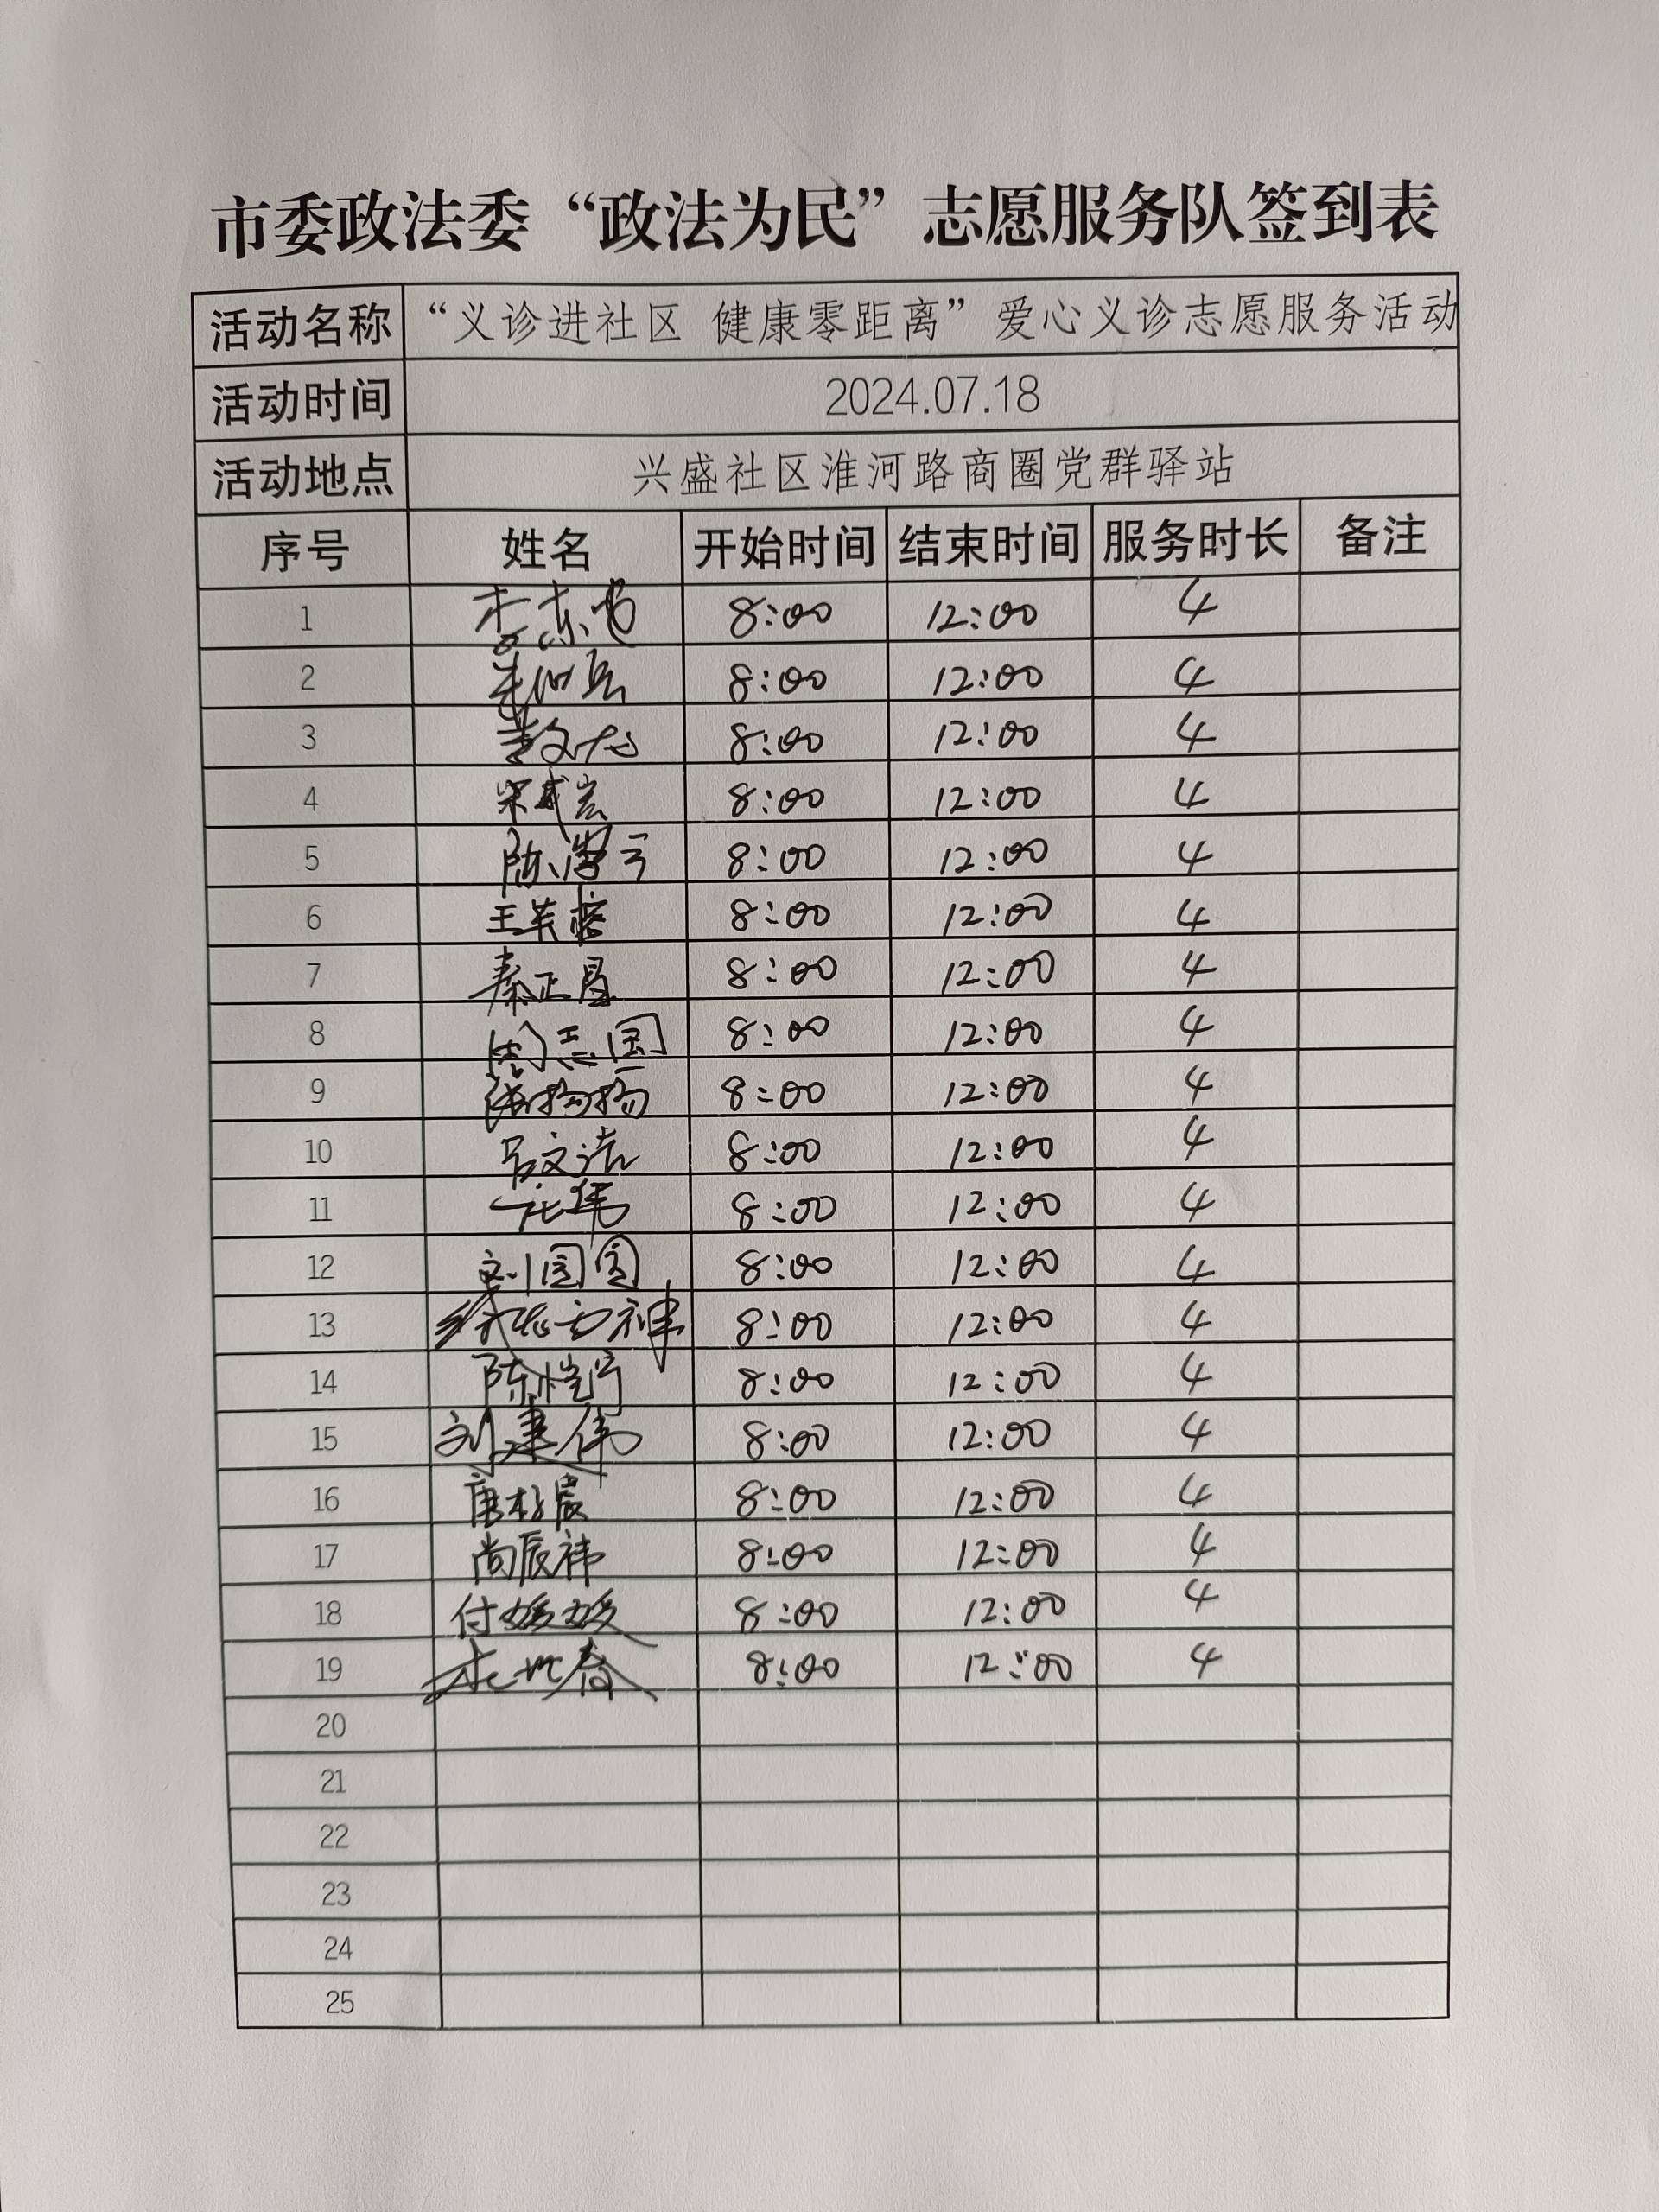 市委政法委“政法为民”志愿服务队签到表
活动名称 “义诊进社区 健康零距离”爱心义诊志愿服务活动
活动时间 2024.07.18
活动地点 兴盛社区淮河路商圈党群驿站
序号 姓名 开始时间 结束时间 服务时长 备注
1 8:00 12:00 4
2 8:00 12:00 4
3 8:00 12:00 4
4 8:00 12:00 4
5 8:00 12:00 4
6 8:00 12:00 4
7 秦正昌 8:00 12:00 4
8 周志国 8:00 12:00 4
9 张扬扬 8:00 12:00 4
10 8:00 12:00 4
11 8:00 12:00 4
12 刘园园 8:00 12:00 4
13 8:00 12:00 4
14 陈恺宁 8:00 12:00 4
15 刘建伟 8:00 12:00 4
16 8:00 12:00 4
17 尚辰祎 8:00 12:00 4
18 付媛媛 8:00 12:00 4
19 8:00 12:00 4
20
21
22
23
24
25